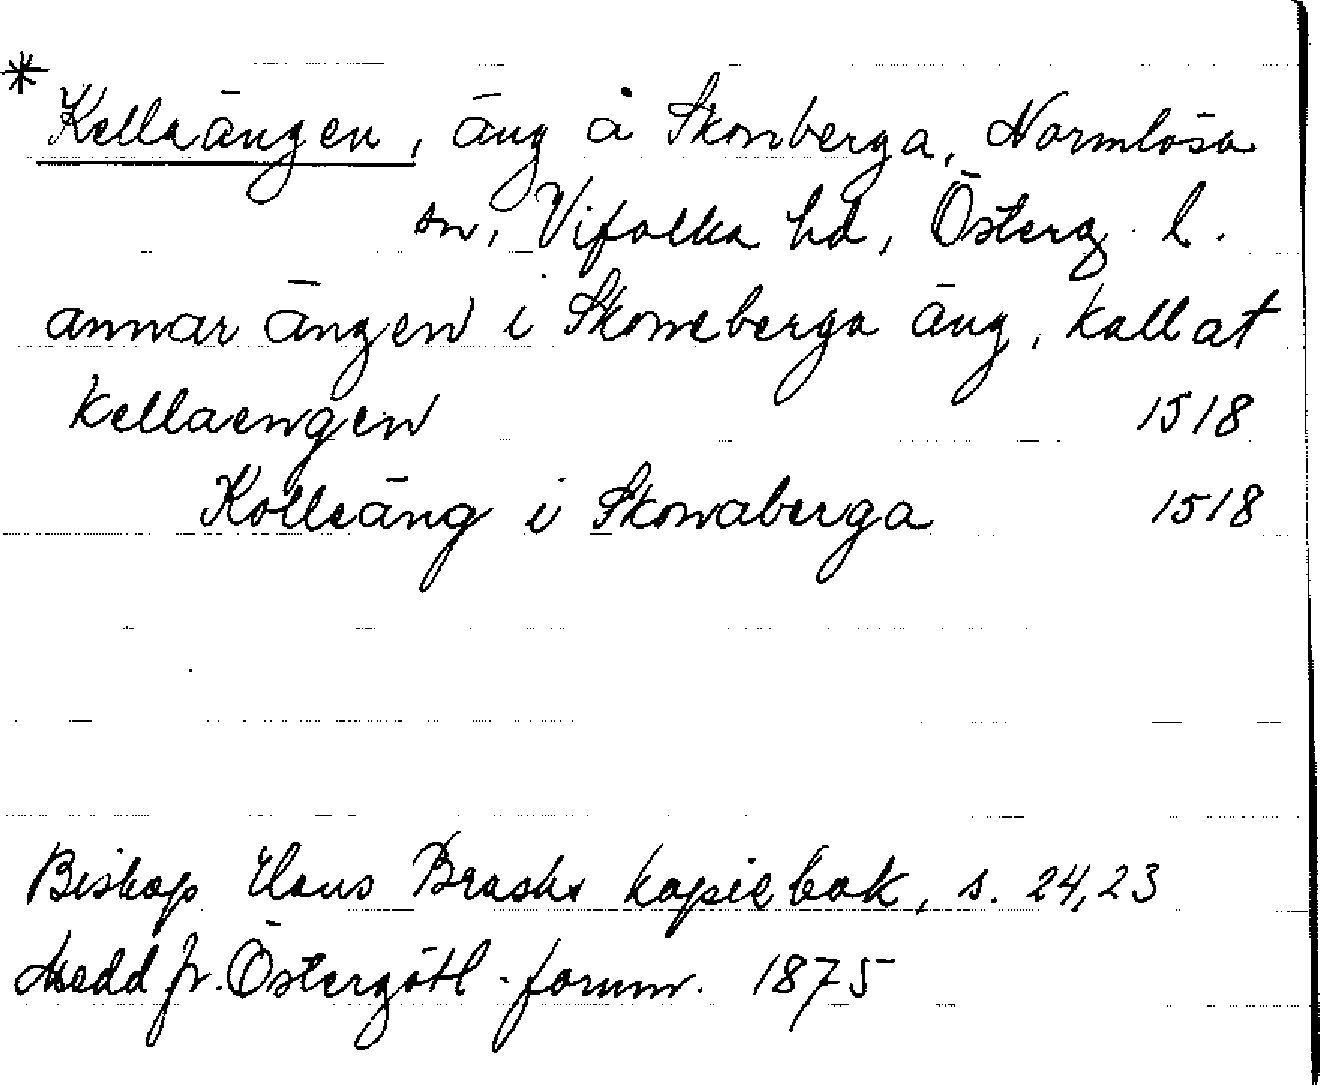 * Kellaängen, äng å Skonberga, Normlösa
sn, Vifolka hd, Österg. l.
annar ängen i Skoneberga äng, kallat
kellaengen 1518
Kolleäng i Skonaberga 1518
Biskop Hans Brasks kopiebok, s. 24, 23
Medd fr. Östergötl. fornm. 1875